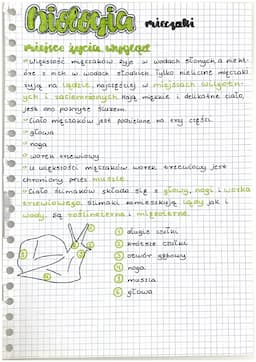 Biologia mięczaki
miejsce życia, wygląd
Większość mięczaków żyje w wodach słonych, a niekt-
óre z nich w wodach słodkich. Tylko nieliczne mięczaki
żyją na lądzie, najczęściej w miejscach wilgotn-
ych i zacienionych. Mają miękkie i delikatne ciało,
jest ono pokryte śluzem.
Ciało mięczaków jest podzielone na trzy części:
głowa
noga
worek trzewiowy
U większości mięczaków worek trzewiowy jest
chroniony przez muszlę.
Ciało ślimaków składa się z głowy, nogi i worka
trzewiowego. Ślimaki zamieszkują lądy jak i
wody. są roślinożerne i mięsożerne.
1 długie czułki
2 krótsze czułki
3 otwór gębowy
4 noga
5 muszla
6 głowa